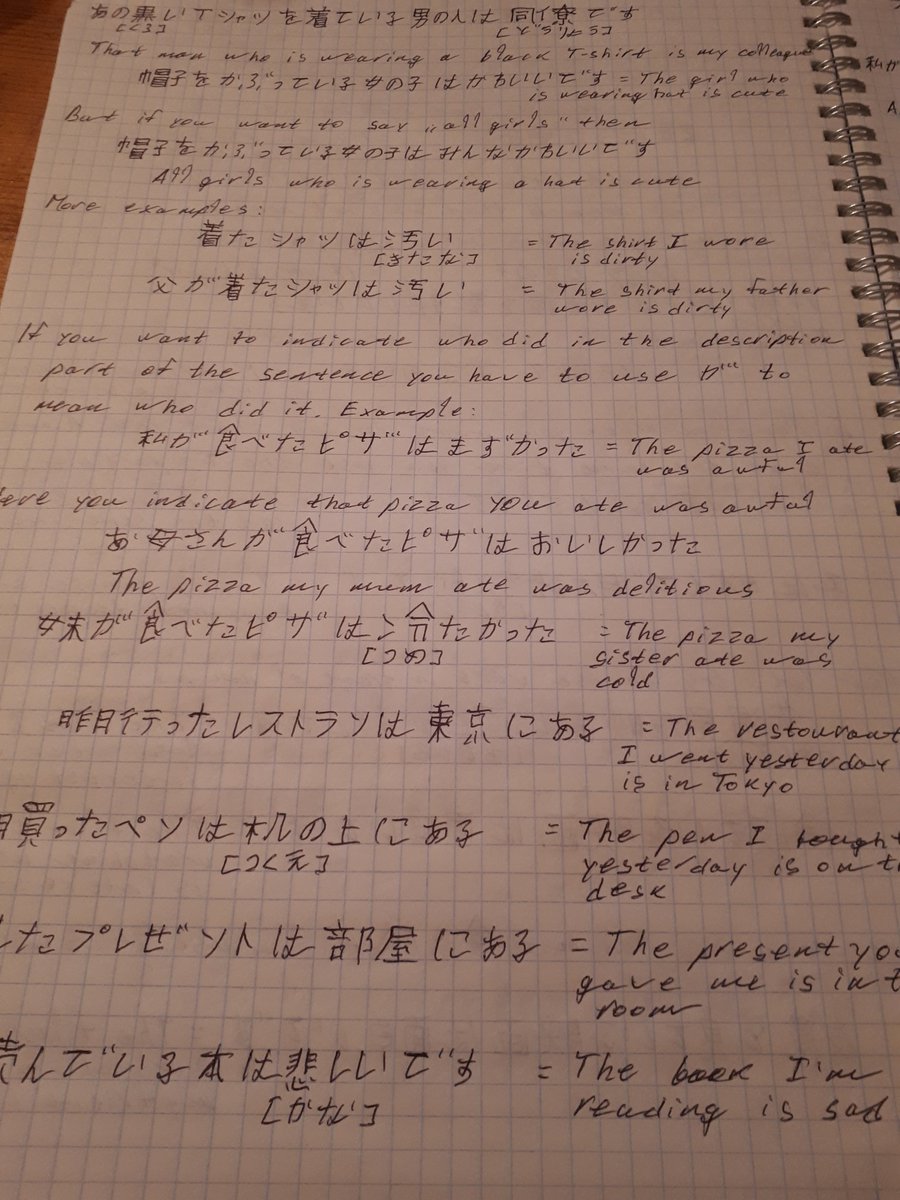 あの黒いTシャツを着ている男の人は同僚です
[くろ] [どうりょう]
That man who is wearing a black T-shirt is my colleague
帽子をかぶっている女の子はかわいいです = The girl who
is wearing hat is cute
But if you want to say „all girls" then
帽子をかぶっている女の子はみんなかわいいです
All girls who is wearing a hat is cute
More examples:
着たシャツは汚い = The shirt I wore
[きたな] is dirty
父が着たシャツは汚い = The shird my father
wore is dirty
If you want to indicate who did in the description
part of the sentence you have to use が to
mean who did it. Example:
私が食べたピザはまずかった = The pizza I ate
was awful
you indicate that pizza YOU ate was awful
お母さんが食べたピザはおいしかった
The pizza my mum ate was delitious
妹が食べたピザは冷たかった = The pizza my
[つめ] sister ate was
cold
昨日行ったレストランは東京にある = The restourant
I went yesterday
is in Tokyo
買ったペンは机の上にある = The pen I bought
[つくえ] yesterday is on
desk
したプレゼントは部屋にある = The present
gave me is in
room
読んでいる本は悲しいです = The book I'm
[かな] reading is sad
私が